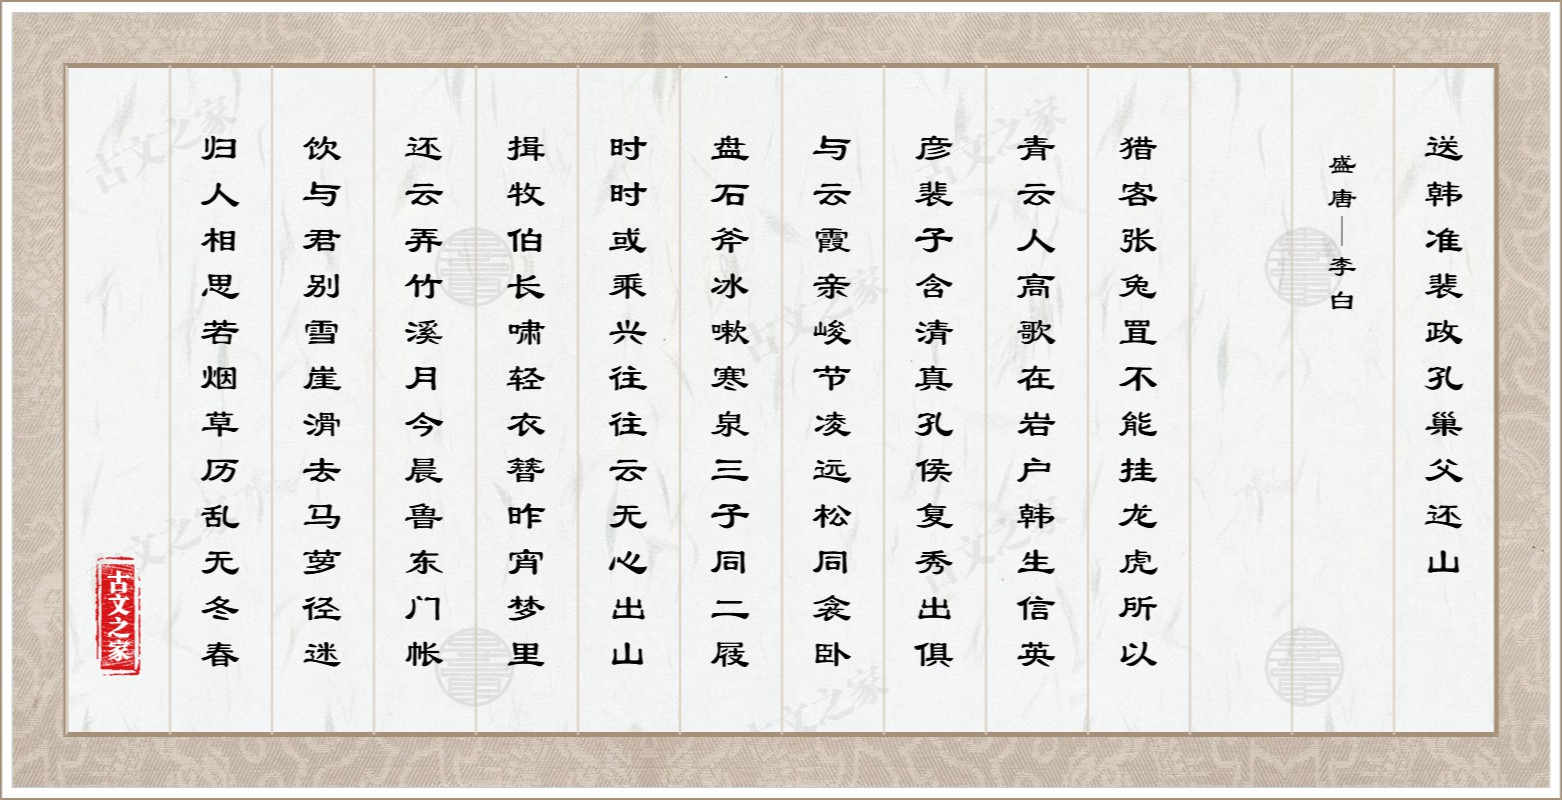 送韩准裴政孔巢父还山
盛唐—李白
猎客张兔罝不能挂龙虎所以
青云人高歌在岩户韩生信英
彦裴子含清真孔侯复秀出俱
与云霞亲峻节凌远松同衾卧
盘石斧冰嗽寒泉三子同二屐
时时或乘兴往往云无心出山
揖牧伯长啸轻衣簪昨宵梦里
还云弄竹溪月今晨鲁东门帐
饮与君别雪崖滑去马萝径迷
归人相思若烟草历乱无冬春
古文之家
古文之家
古文之家
古文之家
古文之家
古文之家
古文之家